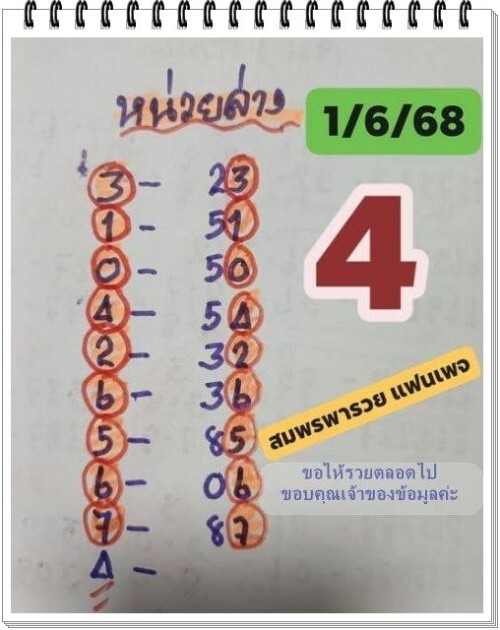 หน่วยล่าง
1/6/68
3 - 23
1 - 51
0 - 50
4 - 54
2 - 32
6 - 36
5 - 85
6 - 06
7 - 87
4 -
4
สมพรพารวย แฟนเพจ
ขอให้รวยตลอดไป
ขอบคุณเจ้าของข้อมูลค่ะ